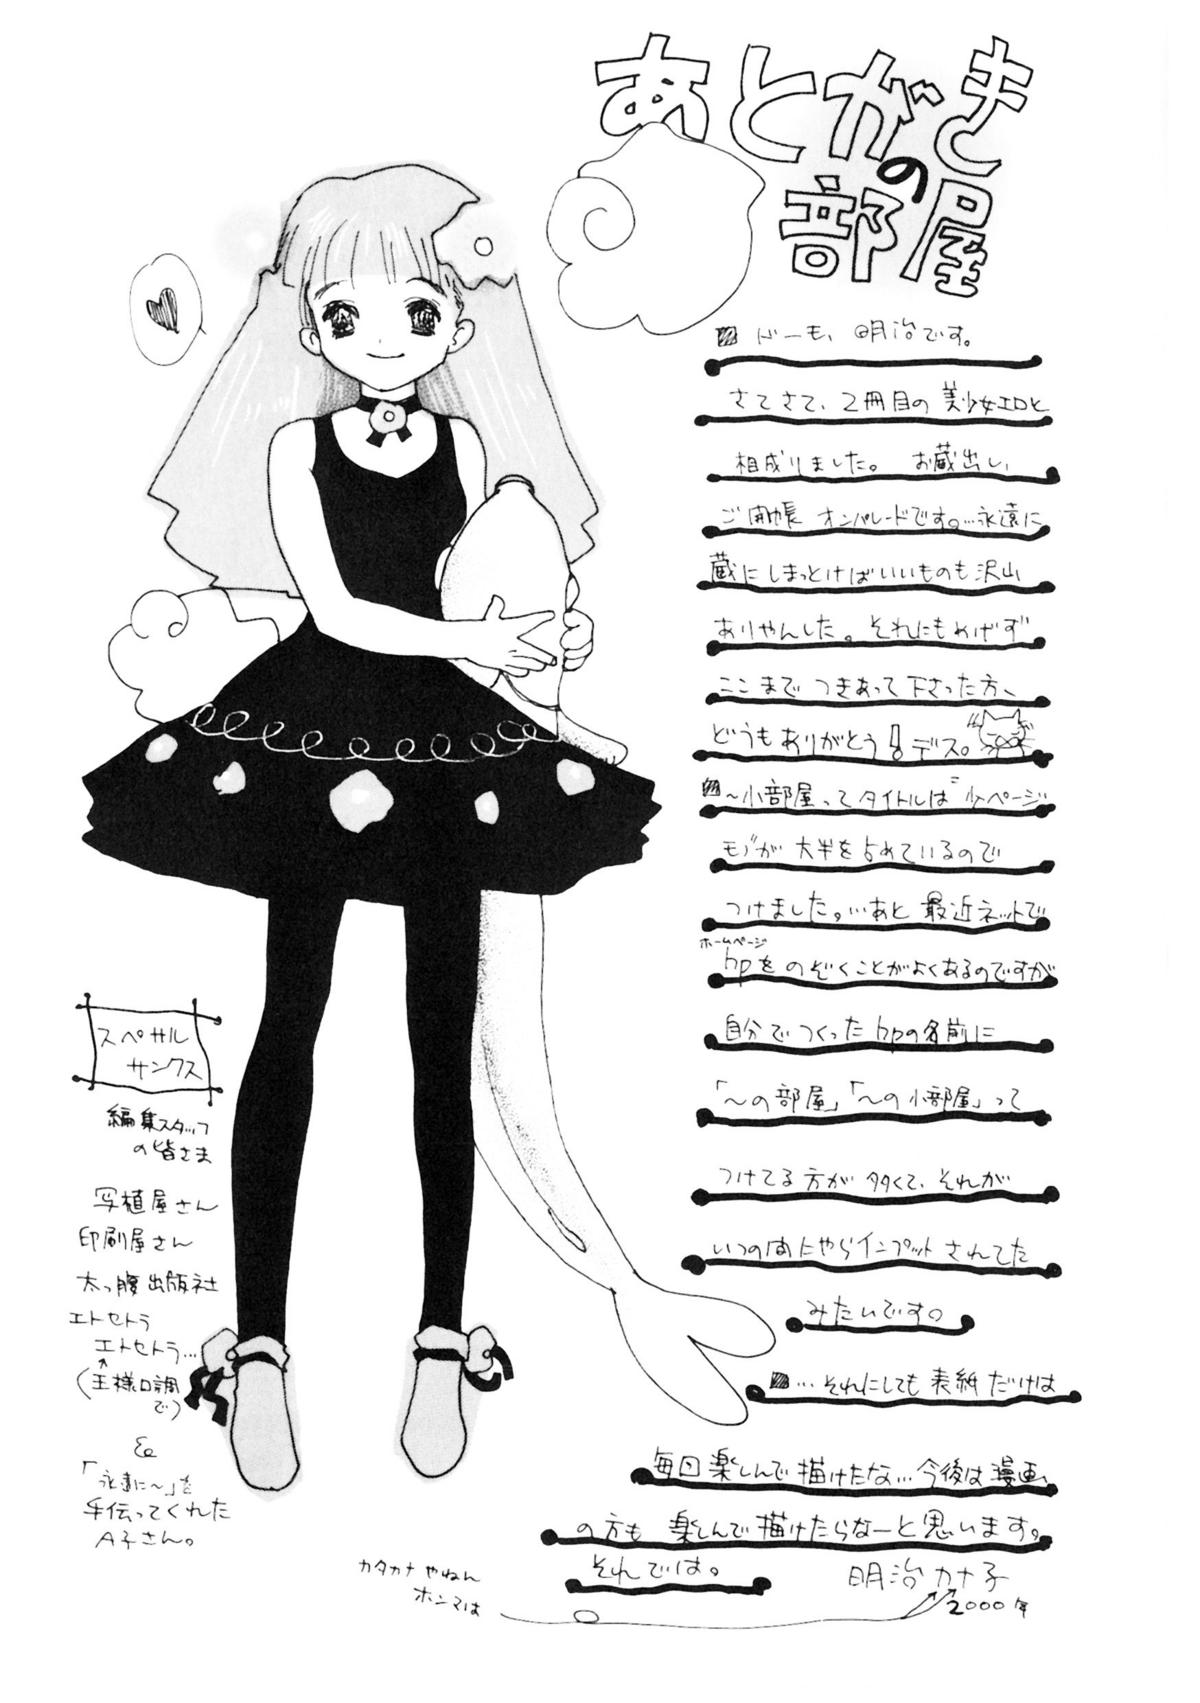 あとがき
の
部屋
ドーモ、明治です。
さてさて、2冊目の美少女エロと
相成りました。 お蔵出し、
ご開帳 オンパレードです。…永遠に
蔵にしまっとけばいいものも沢山
ありやんした。それにもめげず
ここまで つきあって下さった方、
どうもありがとう!デス。
〜小部屋ってタイトルは 少ページ
モノが 大半を占めているので
つけました。…あと 最近ネットで
ホームページ
hpをのぞくことがよくあるのですが
自分でつくったhpの名前に
「〜の部屋」「〜の小部屋」って
つけてる方が多くて、それが
いつの間にやらインプットされてた
みたいです。
…それにしても 表紙だけは
毎回楽しんで描けたな…今後は漫画
の方も 楽しんで描けたらなーと思います。
それでは。
明治カナ子
2000年
カタカナやねん
ホンマは
スペサル
サンクス
編集スタッフ
の皆さま
写植屋さん
印刷屋さん
太っ腹出版社
エトセトラ
エトセトラ…
(王様口調
で)
&
「永遠に〜」を
手伝ってくれた
A子さん。